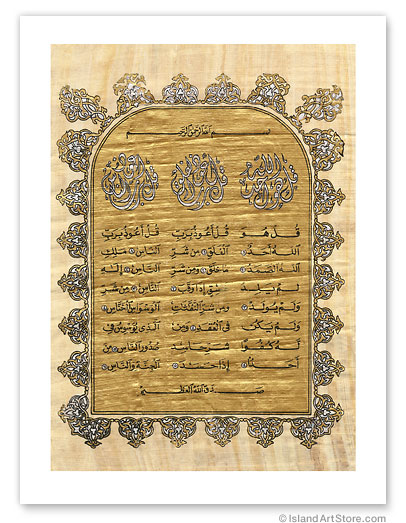 بسم الله الرحمن الرحيم
قل هو الله أحد
قل أعوذ برب الفلق
قل أعوذ برب الناس
قُلْ هُوَ
اللَّهُ أَحَدٌ
اللَّهُ الصَّمَدُ
لَمْ يَلِدْ
وَلَمْ يُولَدْ
وَلَمْ يَكُن
لَّهُ كُفُوًا
أَحَدٌ
قُلْ أَعُوذُ بِرَبِّ
الْفَلَقِ مِن شَرِّ
مَا خَلَقَ وَمِن شَرِّ
غَاسِقٍ إِذَا وَقَبَ
وَمِن شَرِّ النَّفَّٰثَٰتِ
فِي الْعُقَدِ وَمِن
شَرِّ حَاسِدٍ
إِذَا حَسَدَ
قُلْ أَعُوذُ بِرَبِّ
النَّاسِ مَلِكِ
النَّاسِ إِلَٰهِ
النَّاسِ مِن شَرِّ
الْوَسْوَاسِ الْخَنَّاسِ
الَّذِي يُوَسْوِسُ فِي
صُدُورِ النَّاسِ مِنَ
الْجِنَّةِ وَالنَّاسِ
صدق الله العظيم
© IslandArtStore.com